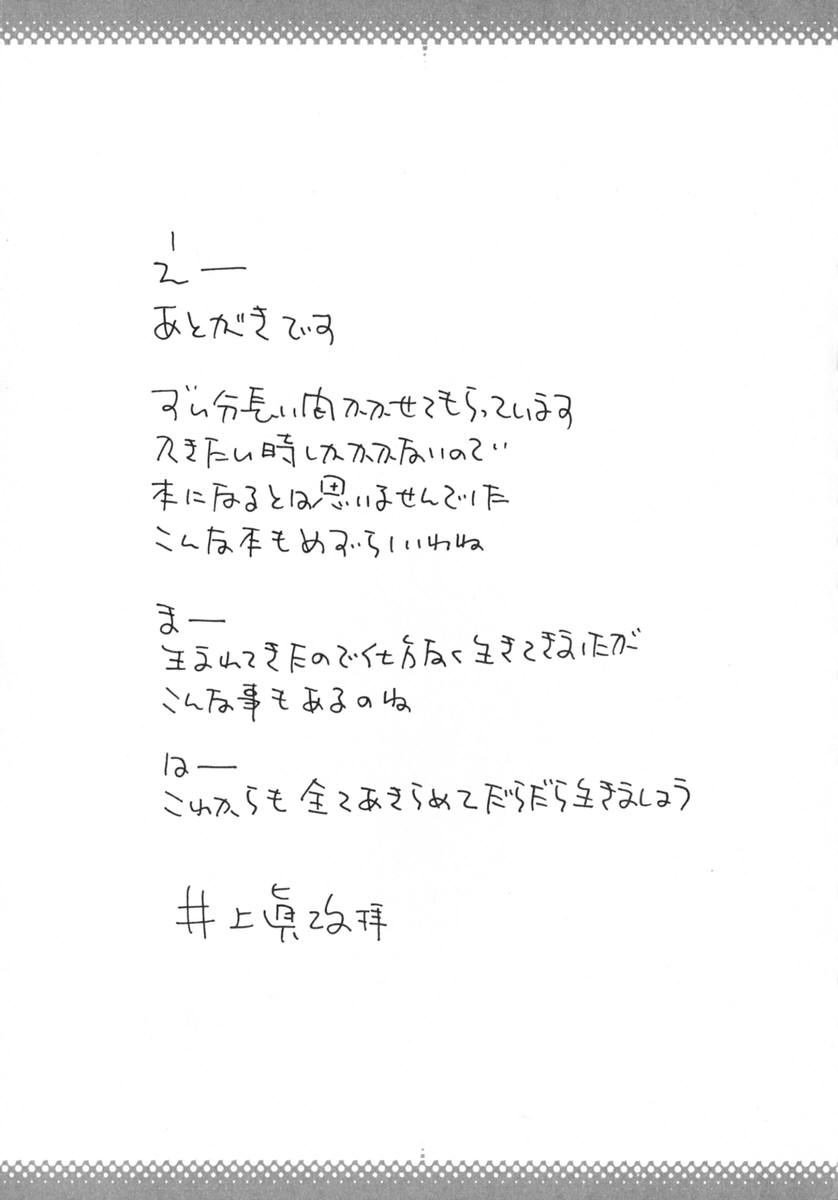 えー
あとがきです
ずい分長い間かかせてもらっています
人きたい時しかかかないので
本になるとは思いませんでした
こんな本もめずらしいわね
まー
生まれてきたので仕方なく生きてきましたが
こんな事もあるのね
はー
これからも全てあきらめてだらだら生きましょう
井上眞改拝